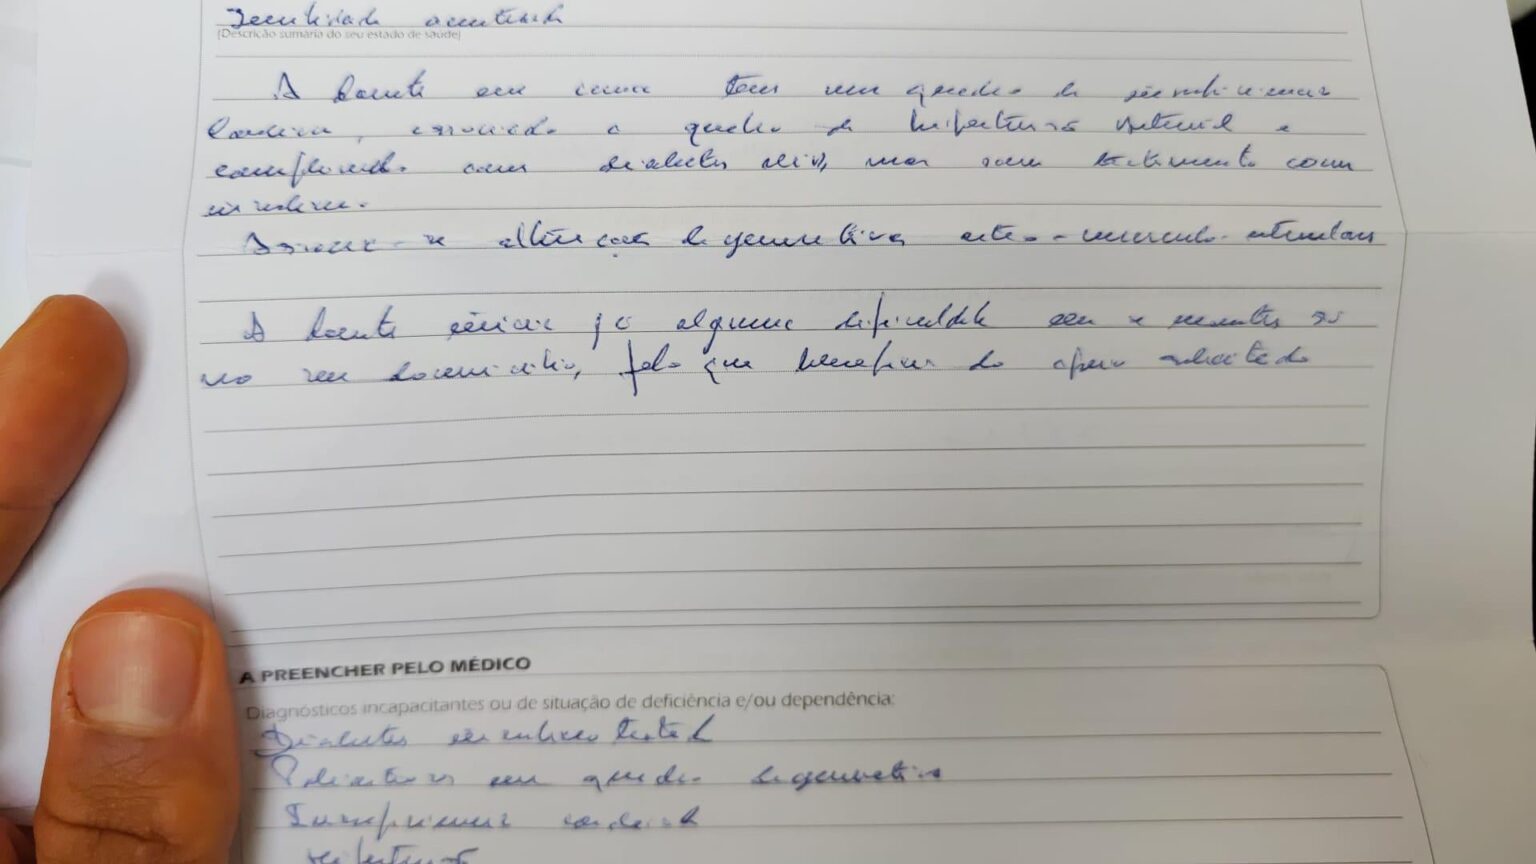 Senilidade acentuada
(Descrição sumária do seu estado de saúde)
A doente em causa tem um quadro de insuficiência
cardíaca, associado a quadro de hipertensão arterial e
complicado com diabetes, mas sem tratamento com
insulina.
Associa-se alterações degenerativas osteo-musculo-articulares
A doente já alguma dificuldade em se manter só
no seu domicílio, pelo que beneficiar do apoio solicitado
A PREENCHER PELO MÉDICO
Diagnósticos incapacitantes ou de situação de deficiência e/ou dependência:
Diabetes
em quadro degenerativo
Insuficiência cardíaca
Hipertensão